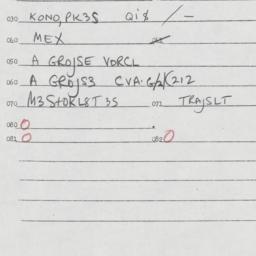 030 KONO,PK3S QI8 / —
040 MEX
050 A GROJSE VORCL
060 A GROJS3 CVA. 212
070 M3S+OKL8T3S 072 TRAJSLT
080 O
081 O 082 O